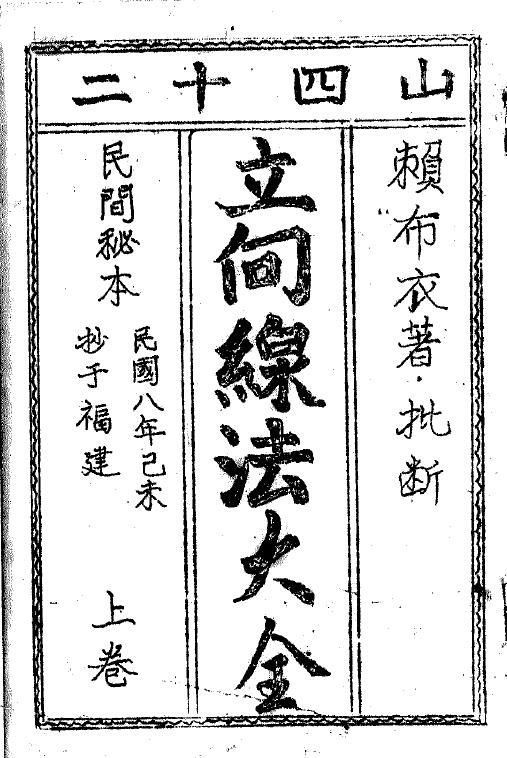 二十四山
賴布衣著·批断
立向線法大全
民間秘本
民國八年己未
抄于福建
上卷